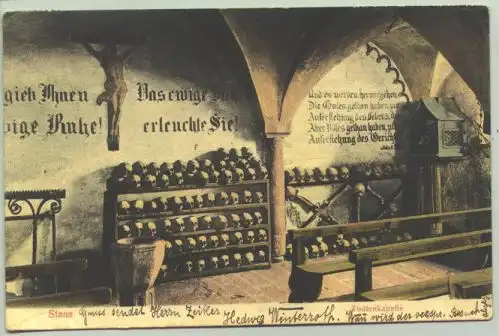 gieb Ihnen
Das ewige
wige Ruhe!
erleuchte Sie!
Und es werden hervorgehen,
Die Gutes gethan haben, zur
Auferstehung des Lebens, die
Aber Böses gethan haben, zur
Auferstehung des Gerichts
Stans
Todtenkapelle
Gruss sendet Herrn Zeiler Hedwig Winterroth. Wann wird der